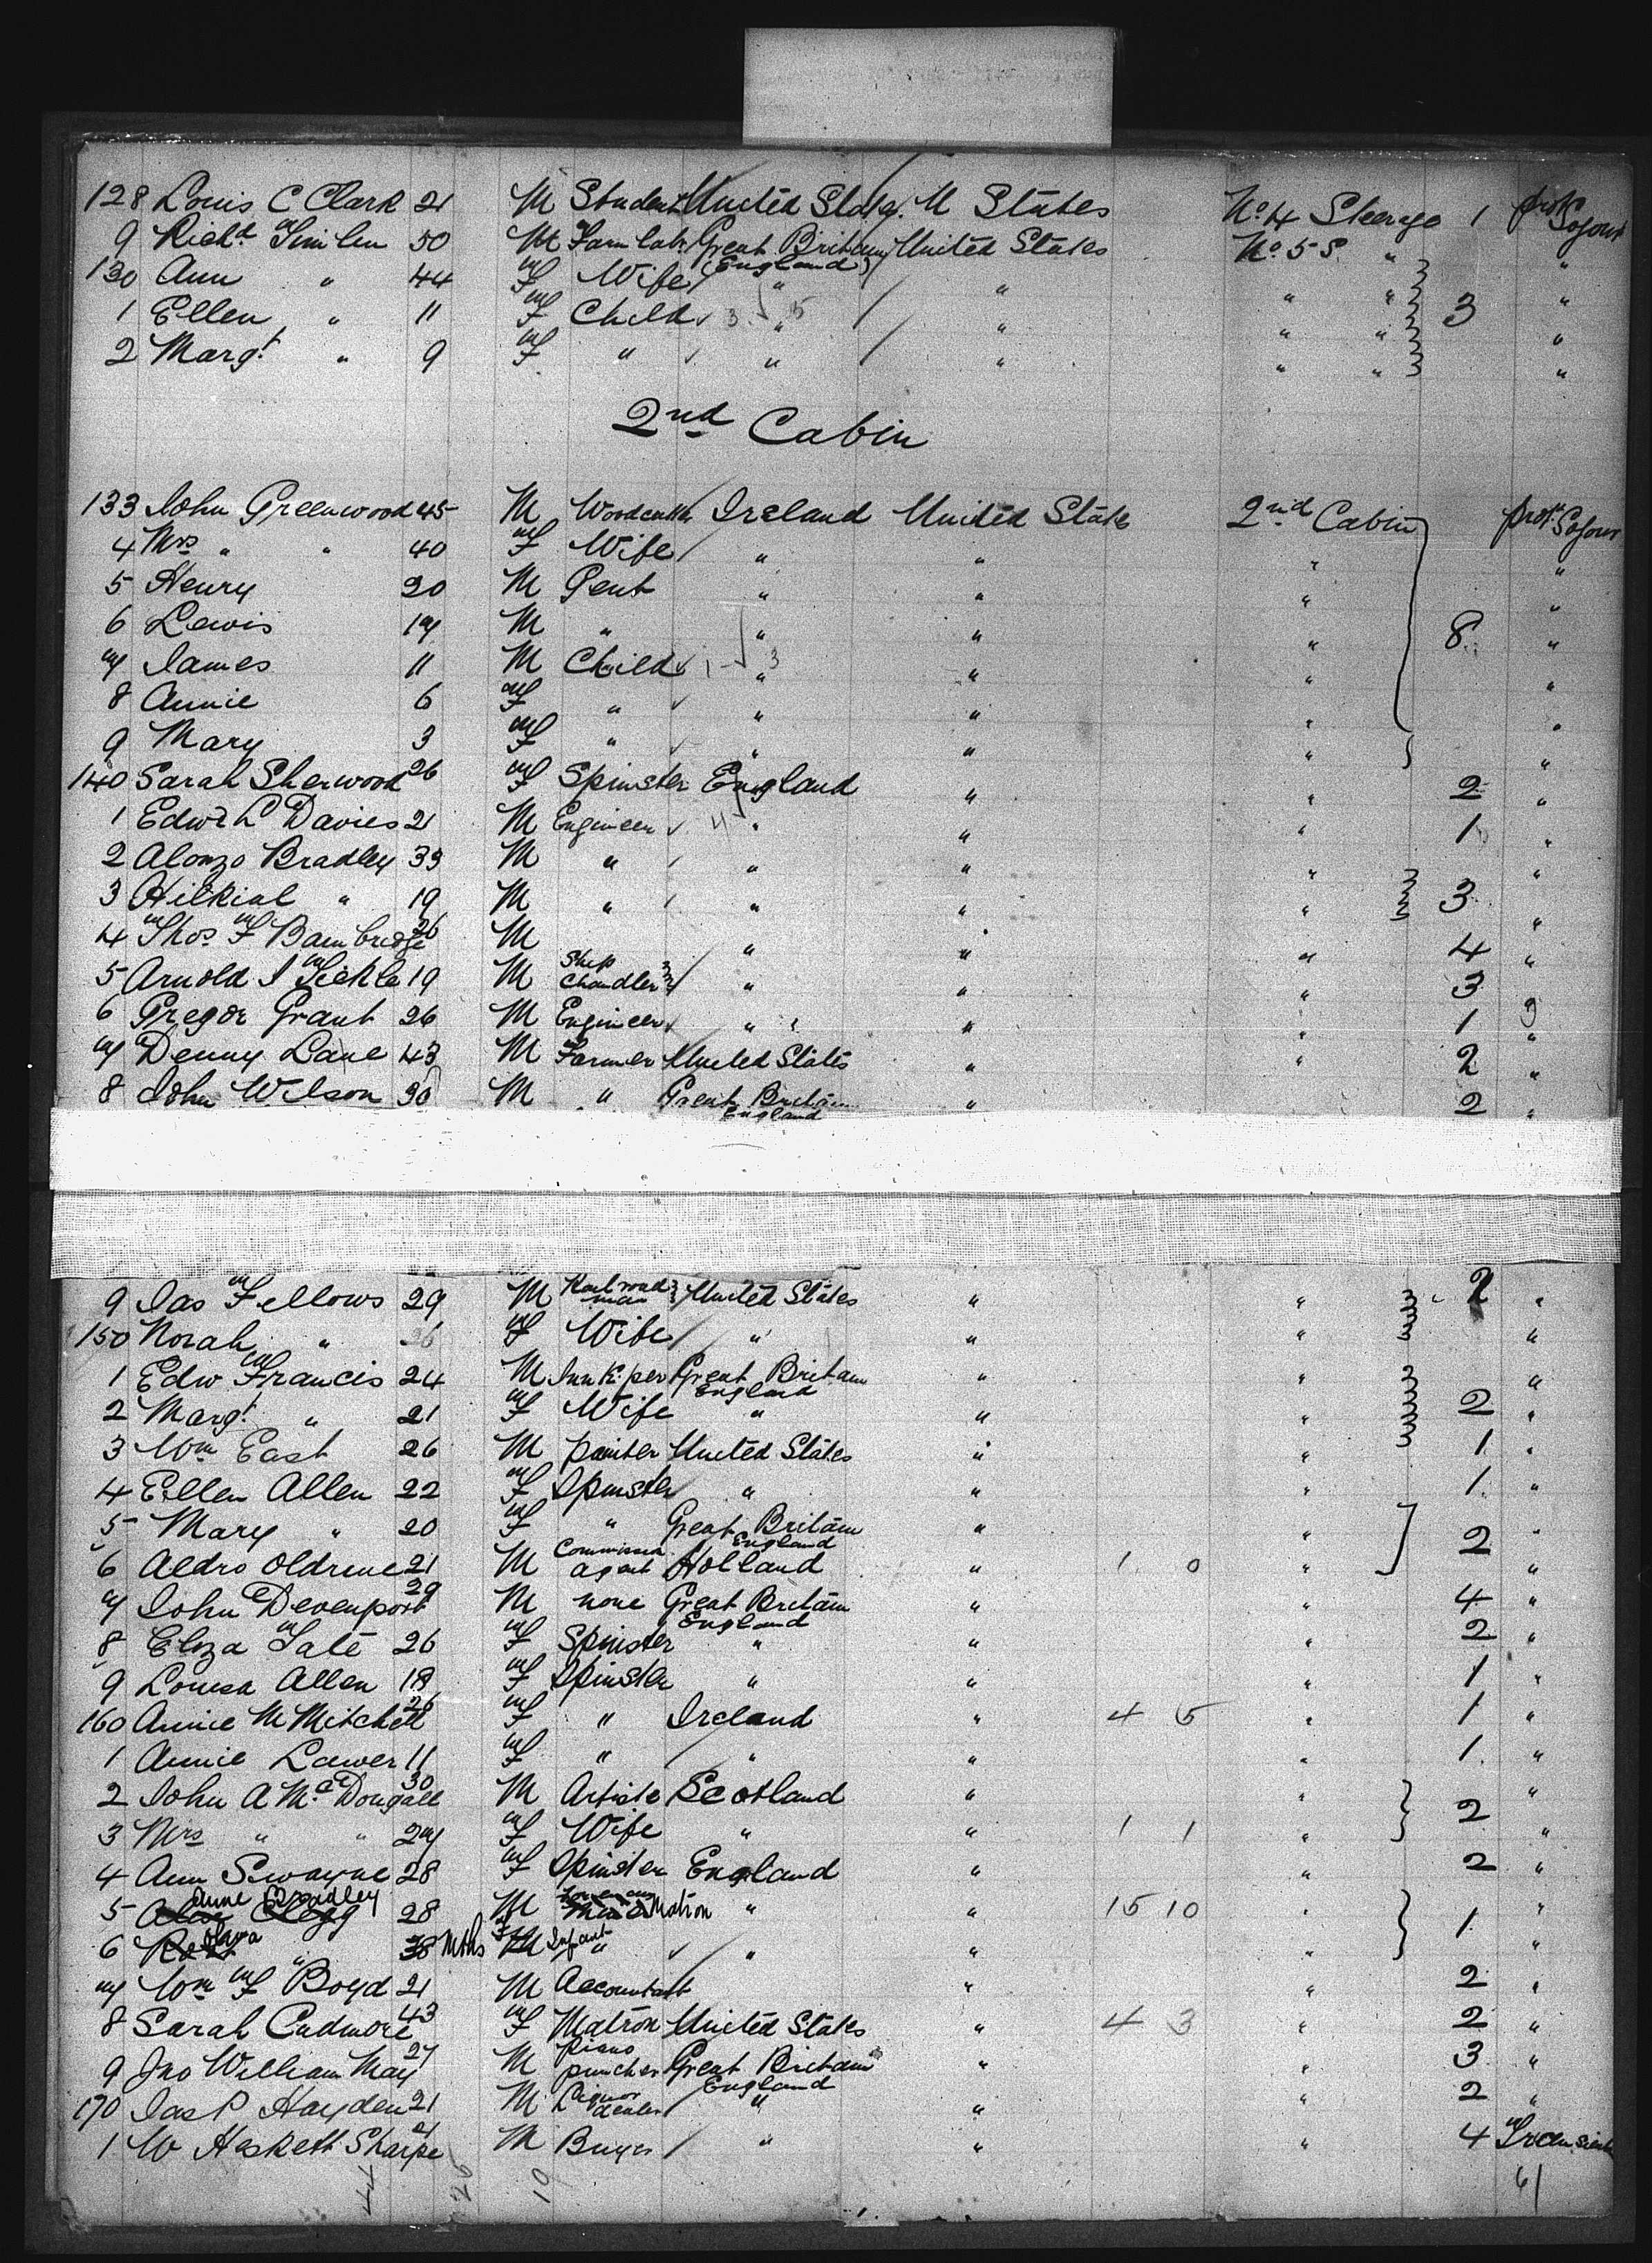 128 Louis C Clark 21 M Student United States U States No 4 Steerage 1 prot Sojour
9 Richd 50 M Farm labr Great Britain United States No 5 S. "
(England)
130 Ann " 44 F Wife " " " " "
1 Ellen " 11 F Child " " " " 3 "
2 Margt " 9 F " " " " " "
2nd Cabin
133 John Greenwood 45 M Woodcutter Ireland United State 2nd Cabin prot Sojour
4 Mrs " " 40 F Wife " " " "
5 Henry 20 M Gent " " " "
6 Lewis 17 M " " " " 8 "
7 James 11 M Child " " " "
8 Annie 6 F " " " " "
9 Mary 3 F " " " " "
140 Sarah Sherwood 26 F Spinster England " " 2 "
1 Edwd L Davies 21 M Engineer " " " 1 "
2 Alonzo Bradley 39 M " " " " "
3 Hilkial " 19 M " " " " 3 "
4 Thos F Bambridge 26 M " " " 4 "
5 Arnold J Tickle 19 M Ship Chandler " " " 3
6 Gregor Grant 26 M Engineer " " " 1 "
7 Denny Lane 43 M Farmer United States " " 2 "
8 John Wilson 30 M " Great Britain " 2 "
England
9 Jas Fellows 29 M Railroad man United States " " 2 "
150 Norah " 26 F Wife " " " "
1 Edw Francis 24 M Innk:per Great Britain " " "
England
2 Margt " 21 F Wife " " " 2 "
3 Wm East 26 M painter United States " " 1 "
4 Ellen Allen 22 F Spinster " " " 1 "
5 Mary " 20 F " Great Britain " "
England
6 Aldro Oldrine 21 M Commission agent Holland " 1 0 " 2 "
7 John Devenport 29 M none Great Britain " " 4 "
England
8 Eliza Tate 26 F Spinster " " " 2 "
9 Louisa Allen 18 F Spinster " " " 1 "
160 Annie M Mitchell 26 F " Ireland " 4 5 " 1 "
1 Annie Lawer 11 F " " " " 1 "
2 John A McDougall 30 M Artiste Scotland " " "
3 Mrs " " 27 F Wife " " 1 1 " 2 "
4 Ann Swayne 28 F Spinster England " " 2 "
5 Anne Bradley 28 M Matron " " 15 10 " 1 "
6 8 Mths F Infant " " " "
7 Wm F Boyd 21 M Accountant " " 2 "
8 Sarah Cudmore 43 F Matron United States " 4 3 " 2 "
9 Jno William May 27 M piano puncher Great Britain " " 3 "
England
170 Jas P Hayden 21 M Liquor dealer " " " 2 "
1 W Heskett Sharpe 21 M Buyer " " " 4
44 26 10 61